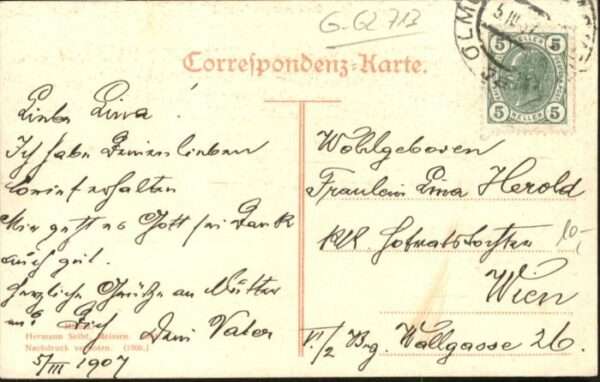 G.G2 713
OLM
5.III.
5 5
5 HELLER 5
Correspondenz-Karte.
Liebe Lina!
Ich habe Deinen lieben
Brief erhalten
Mir geht es Gott sei Dank
auch gut.
herzliche Grüße an Mutter
und Dich Dein Vater
Hermann Seibt, Meissen.
Nachdruck verboten. (1906.)
5/III 1907
Wohlgeboren
Fräulein Lina Herold
k.k. Hofratstochter
10,-
Wien
VI/2 Bg. Wallgasse 26.